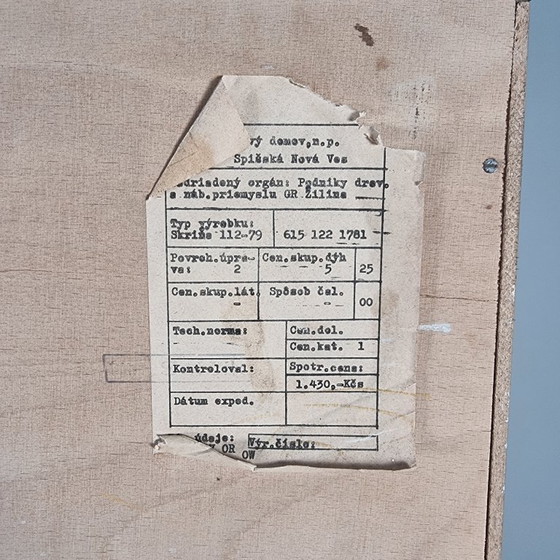 vý domov,n.p.
Spišská Nová Ves
adriadený orgán: Podniky drev.
a náb.priemyslu GR Žilina
Typ výrobku:
Skriňa 112-79 615 122 1781
Povrch.úpra- Cen.skup.dýh
va: 2 5 25
Cen.skup.lát. Spôsob čal.
- - 00
Tech.norma: Cen.dol.
- Cen.kat. 1
Kontroloval: Spotr.cena:
1.430,-Kčs
Dátum exped.
údaje: Výr.číslo:
OR OW